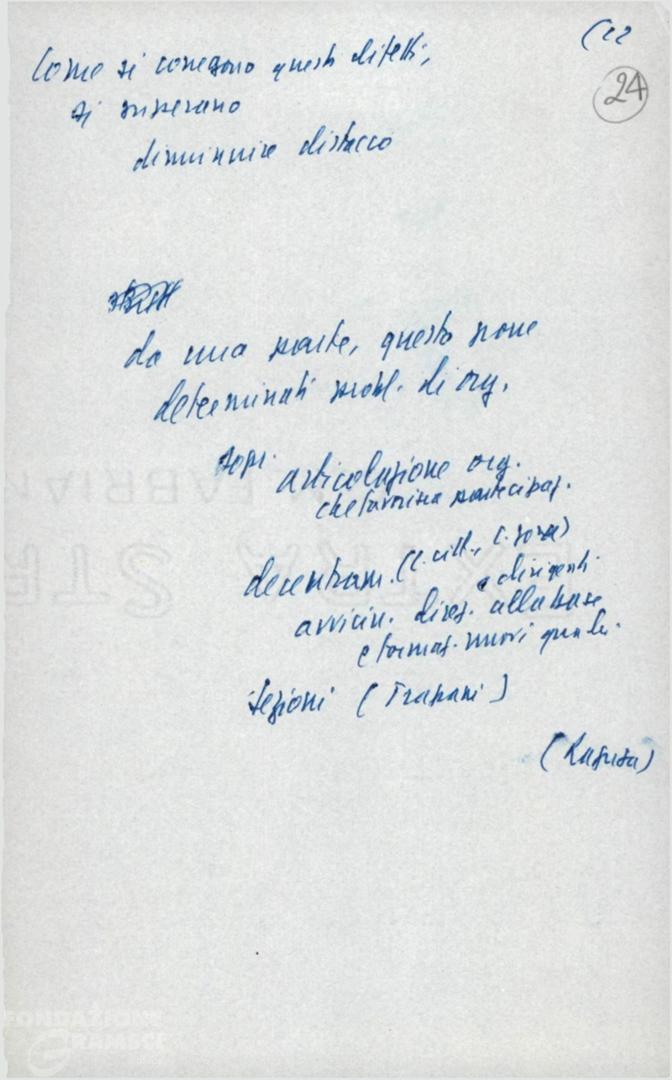 (22
24
Come si correggono questi difetti,
si superano
diminuire distacco
da una parte, questo pone
determinati probl. di org.
sopr. articolazione org.
che favorisca partecipaz.
decentram. (C. citt., C. zona)
e dirigenti
avvicin. direz. alla base
e formaz. nuovi quadri.
Sezioni (Trapani)
(Ragusa)
FONDAZIONE
GRAMSCI